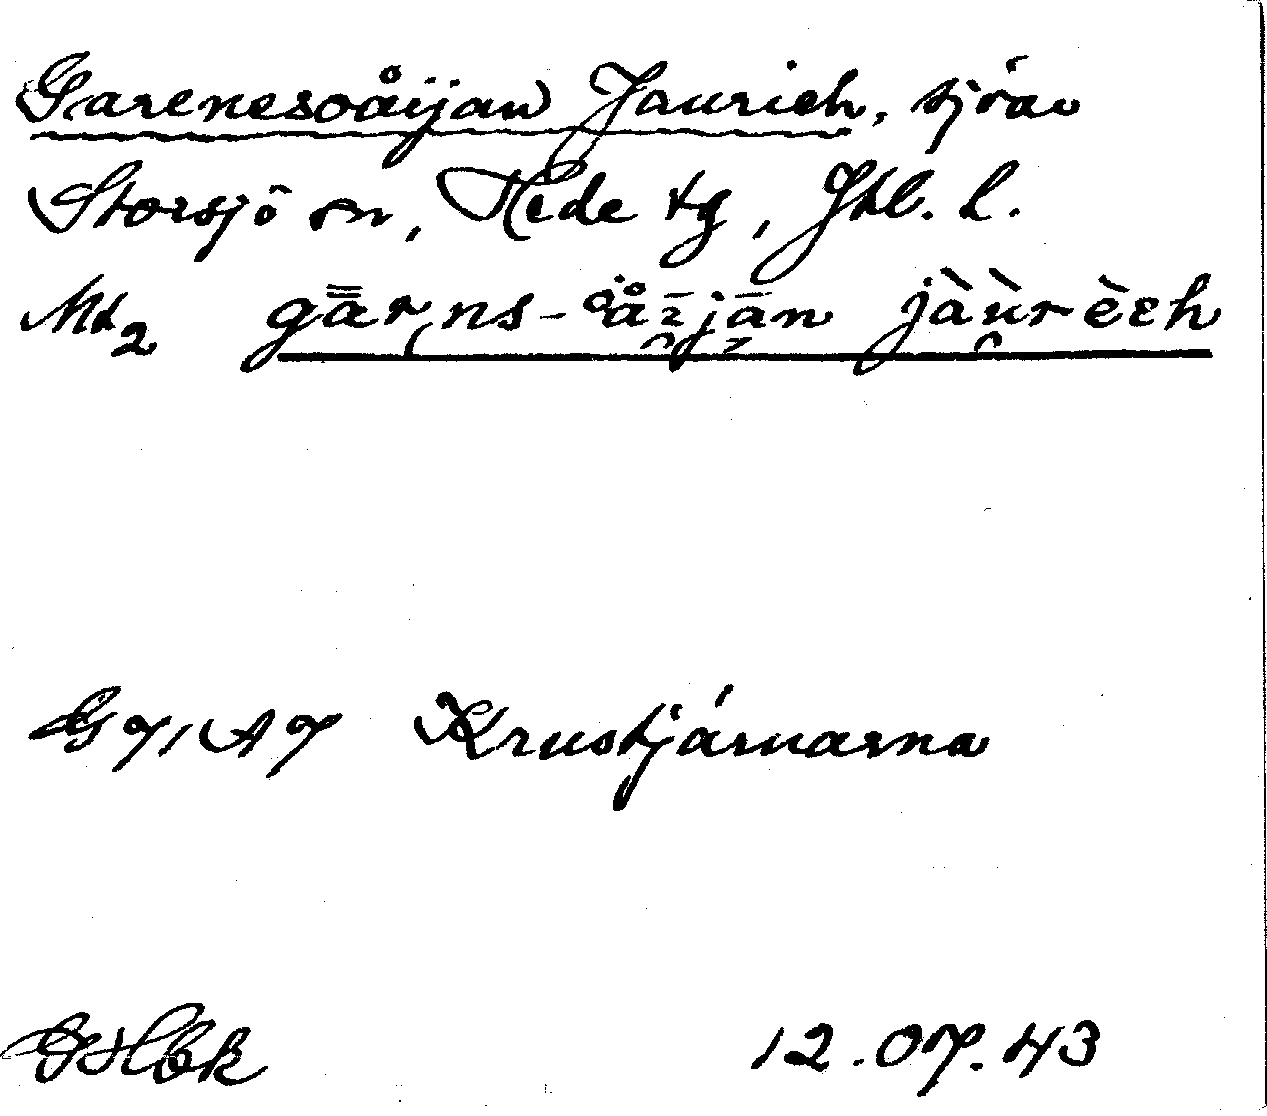 Garenesoåijan Jaurieh, sjöar
Storsjö sn, Hede tg, Jtl. l.
Md2 gā̄r̨ns-åå̄ījān jàùrèɛh
G 7/A7 Krustjärnarna
12.07.43